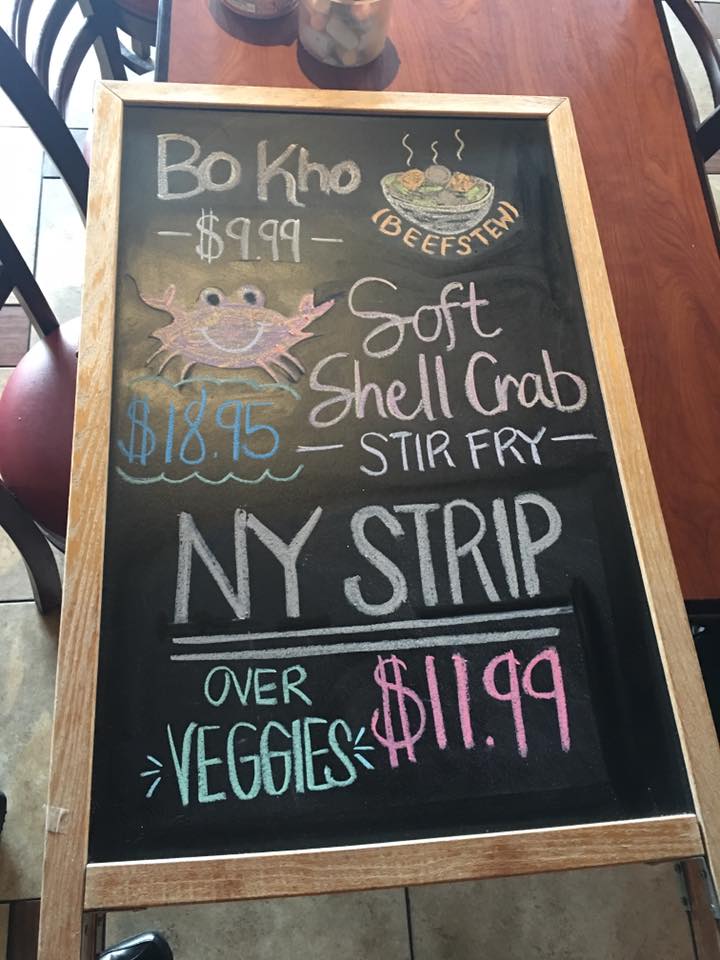 Bo Kho
-$9.99-
(BEEFSTEW)
Soft
Shell Crab
$18.95
- STIR FRY -
NY STRIP
OVER
VEGGIES
$11.99